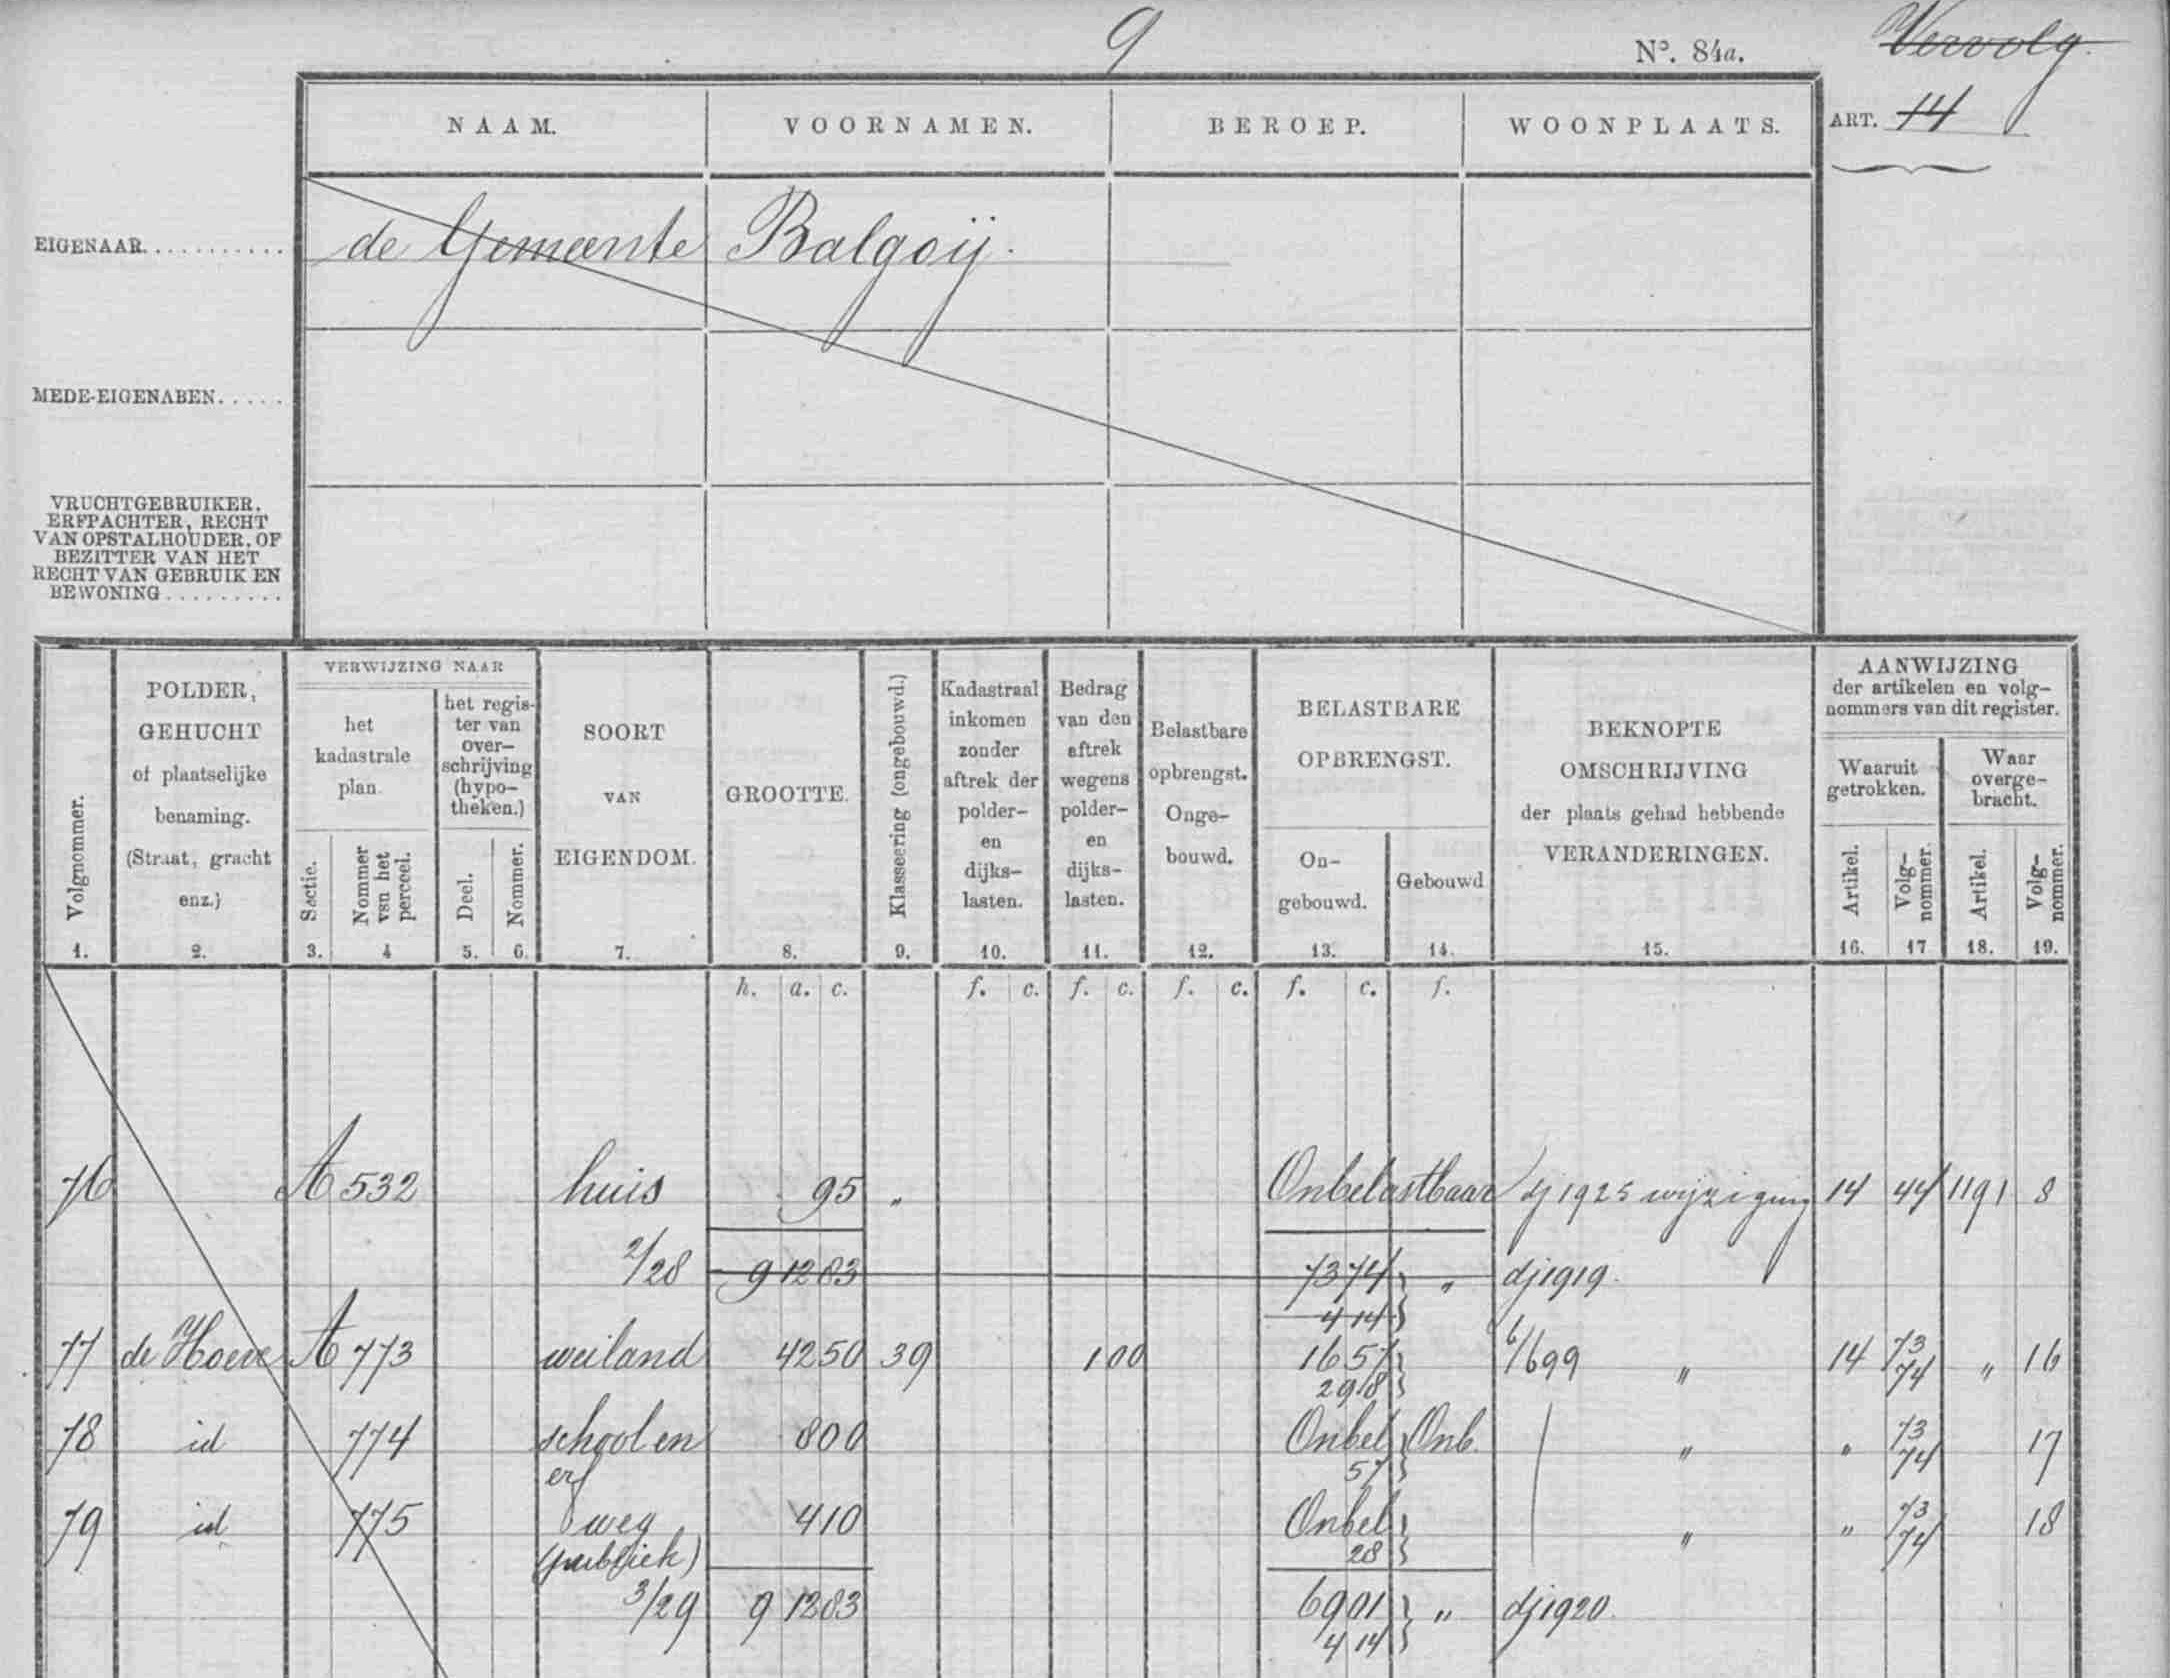 9
Nº. 84a.
Vervolg.
NAAM. VOORNAMEN. BEROEP. WOONPLAATS.
ART. 14
EIGENAAR........... de Gemeente Balgoij.
MEDE-EIGENAREN.....
VRUCHTGEBRUIKER,
ERFPACHTER, RECHT
VAN OPSTALHOUDER, OF
BEZITTER VAN HET
RECHT VAN GEBRUIK EN
BEWONING.........
Volgnommer.
1.
POLDER,
GEHUCHT
of plaatselijke
benaming.
(Straat, gracht
enz.)
2.
VERWIJZING NAAR
het
kadastrale
plan.
Sectie.
3.
Nommer
van het
perceel.
4
het regis-
ter van
over-
schrijving
(hypo-
theken.)
Deel.
5.
Nommer.
6.
SOORT
VAN
EIGENDOM.
7.
GROOTTE.
8.
Klasseering (ongebouwd.)
9.
Kadastraal
inkomen
zonder
aftrek der
polder-
en
dijks-
lasten.
10.
Bedrag
van den
aftrek
wegens
polder-
en
dijks-
lasten.
11.
Belastbare
opbrengst.
Onge-
bouwd.
12.
BELASTBARE
OPBRENGST.
On-
gebouwd.
13.
Gebouwd
14.
BEKNOPTE
OMSCHRIJVING
der plaats gehad hebbende
VERANDERINGEN.
15.
AANWIJZING
der artikelen en volg-
nommers van dit register.
Waaruit
getrokken.
Artikel.
16.
Volg-
nommer.
17
Waar
overge-
bracht.
Artikel.
18.
Volg-
nommer.
19.
h. a. c. f. c. f. c. f. c. f. c. f.
76 A 532 huis 95 " Onbelastbaar dj 1925 wijziging 14 44 1191 8
2/28 9 12 83 73 74 " dj 1919.
4 14
77 de Hoeve A 773 weiland 42 50 39 1 00 16 57 6/699 " 14 73 " 16
2 98 74
78 id 774 school en 8 00 Onbel Onb. " " 73 17
erf 57 74
79 id 775 weg 4 10 Onbel " " 73 18
(publiek) 28 74
3/29 9 12 83 69 01 " dj 1920.
4 14